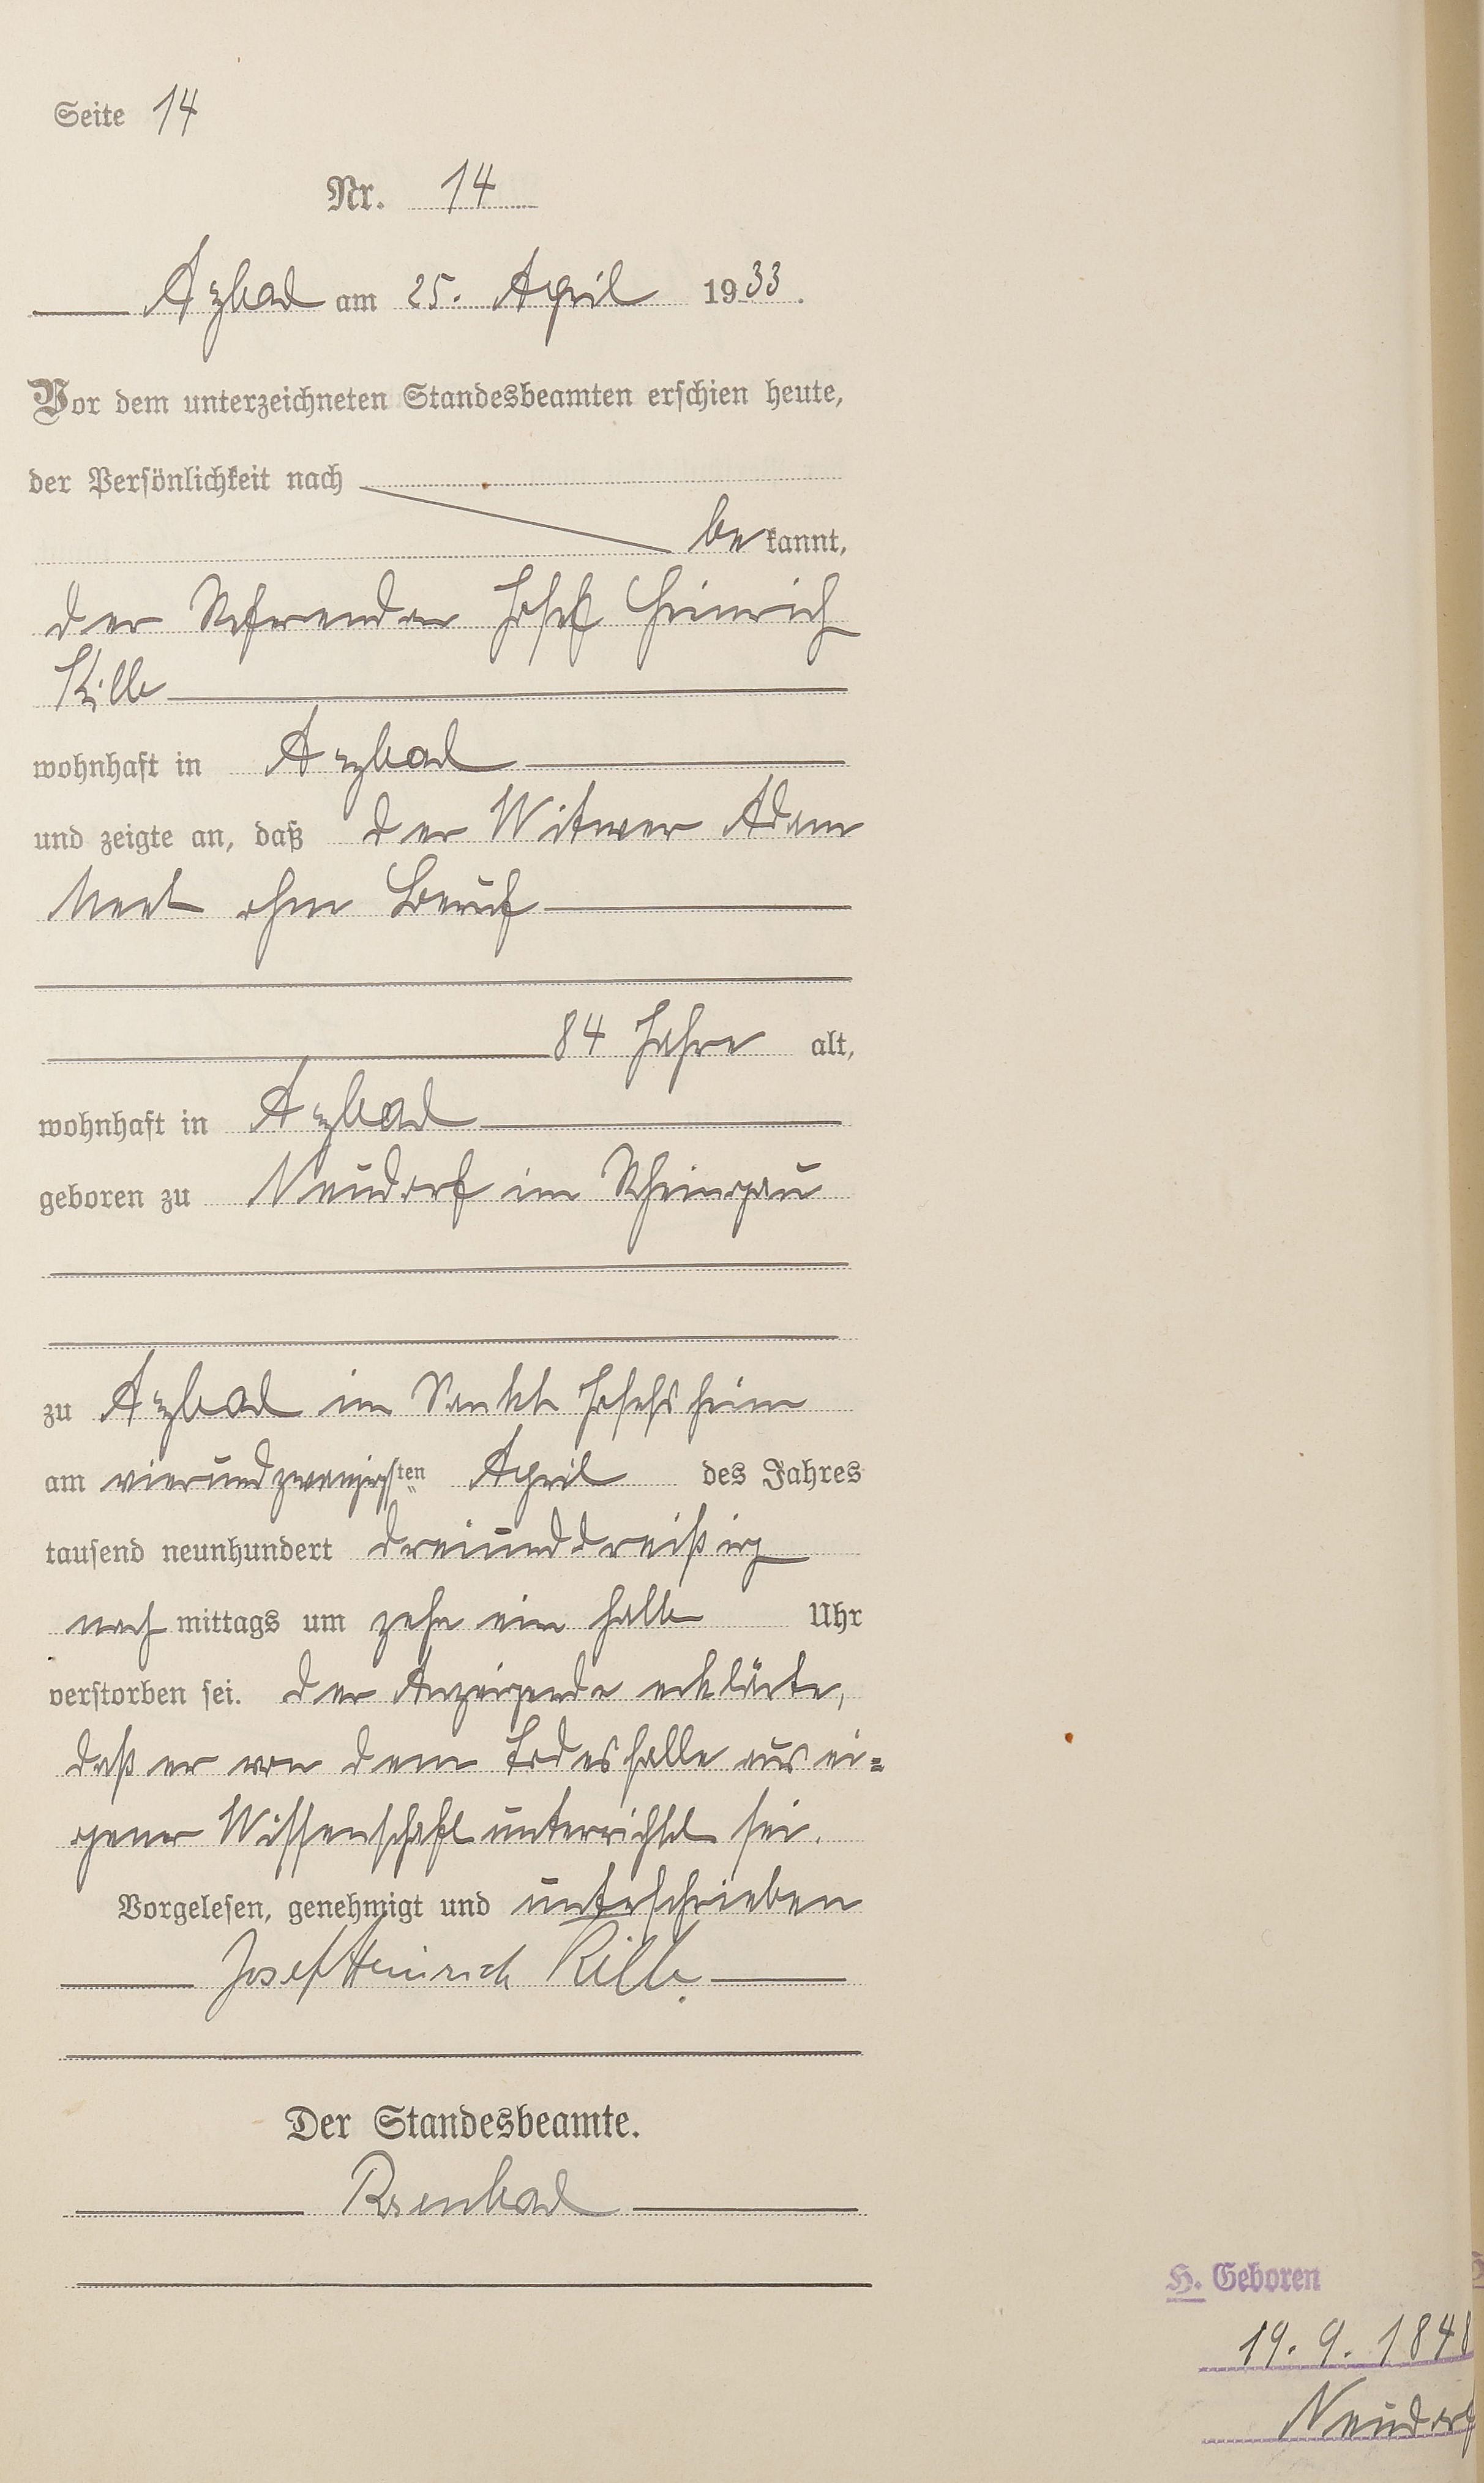 Seite 14
Nr. 14
Arzbach am 25. April 1933.
Vor dem unterzeichneten Standesbeamten erschien heute,
der Persönlichkeit nach
bekannt,
der Josef Heinrich
Kilb
wohnhaft in Arzbach
und zeigte an, daß der Witwer Adam
ohne Beruf
84 Jahre alt,
wohnhaft in Arzbach
geboren zu Neudorf im Rheingau
zu Arzbach im Sankt Josefsheim
am vierundzwanzigsten April des Jahres
tausend neunhundert dreiunddreißig
nachmittags um zehn ein halb Uhr
verstorben sei. Der Anzeigende erklärte,
daß er von dem Todesfalle aus ei=
gener Wissenschaft unterrichtet sei.
Vorgelesen, genehmigt und unterschrieben
Josef Heinrich Kilb.
Der Standesbeamte.
H. Geboren
19. 9. 1848
Neudorf